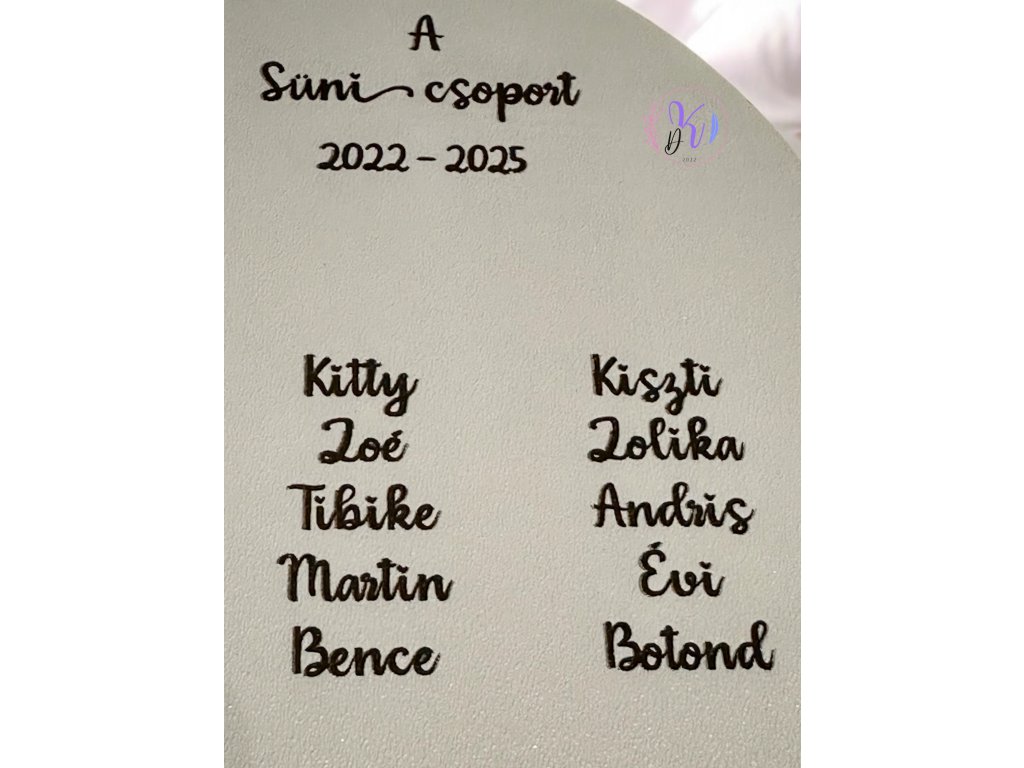 A
Süni csoport
2022 - 2025
DK
2022
Kitty
Zoé
Tibike
Martin
Bence
Kiszti
Zolika
Andris
Évi
Botond